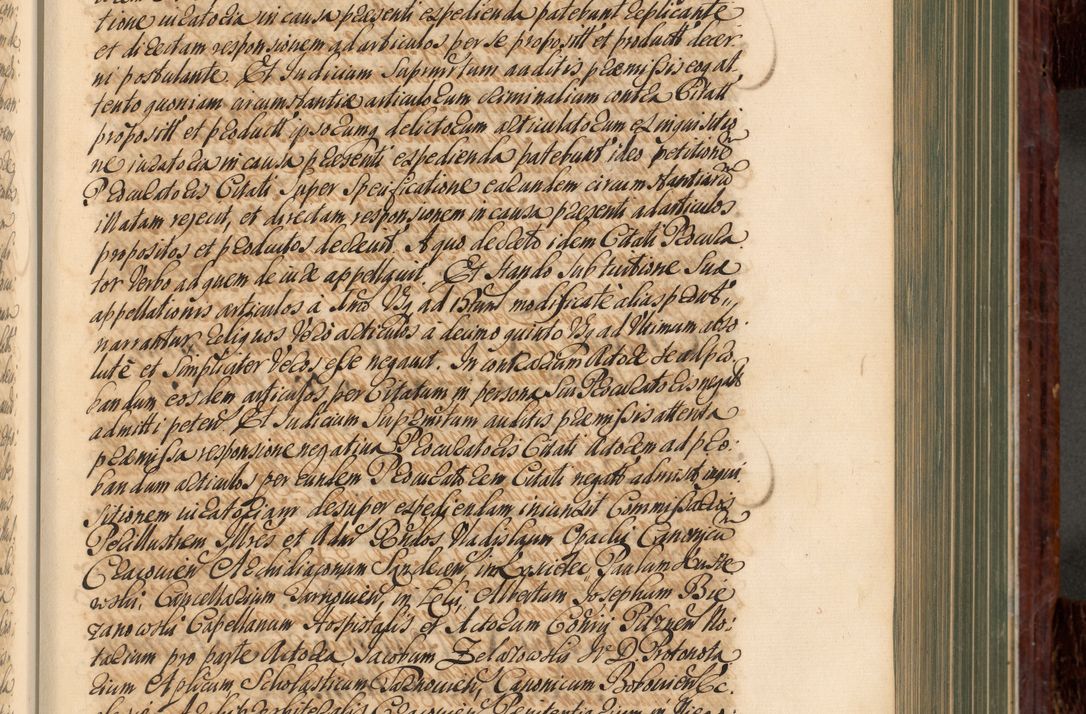 tione iuratoria in causa praesenti expedienda patebunt replicante
et directam responsionem ad articulos per se propositt et productt decer
ni postulante. Et Iudicium Supmū tum auditis praemissis eoq at
tento quoniam circumstantiae articulorum criminalium contra Citatt
propositt et productt ipsorumq delictorum articulatorum ex inquisitio
ne iuratoria in causa praesenti expedienda patebunt ideo petitionē
Procuratoris Citati super Specificatione earundem circumstantiarū
illatam rejecit, et directam responsionem in causa praesenti ad articulos
propositos et productos decrevit. A quo decreto idem Citati Procura
tor Verbo ad quem de iure appellavit. Et stando sub tuitione Sua
appellationis articulos a Imo Usq ad 15tum modificate alias prout
narrantur, reliquos vero articulos a decimo quinto Usq ad Ultimum abso
lute et simpliciter veros esse negavit. In contrarium Actore se ad pro
bandum eosdem articulos per Citatum in persona Sui Procuratoris negatt
admitti petente Et Iudicium Supremū tum auditis praemissis attenta
praemissa responsione negativa Procuratoris Citati Actorem ad pro:
bandum articulos per eundem Procuratorem Citati negatt admisit, inqui
sitionem iuratoriam desuper expediendam iniunxit Commissarios
Perillustrem Illres et Adm Rndos Vladislaum Opacki Canonicū
Cracovien Archidiaconum Sandecen in Paulum
Cancellarium Tarnovien, in Albertum Josephum Bie
zanowski Capellanum Hospitalis et Actorum Consrÿ Pilznen No:
tarium pro parte Actorea Jacobum Zelarowski Ir D Protonota
rium Aplicum Scholasticum Tarnovien, Canonicum Bobovien Ec.
Cracovien Penitentiarium in